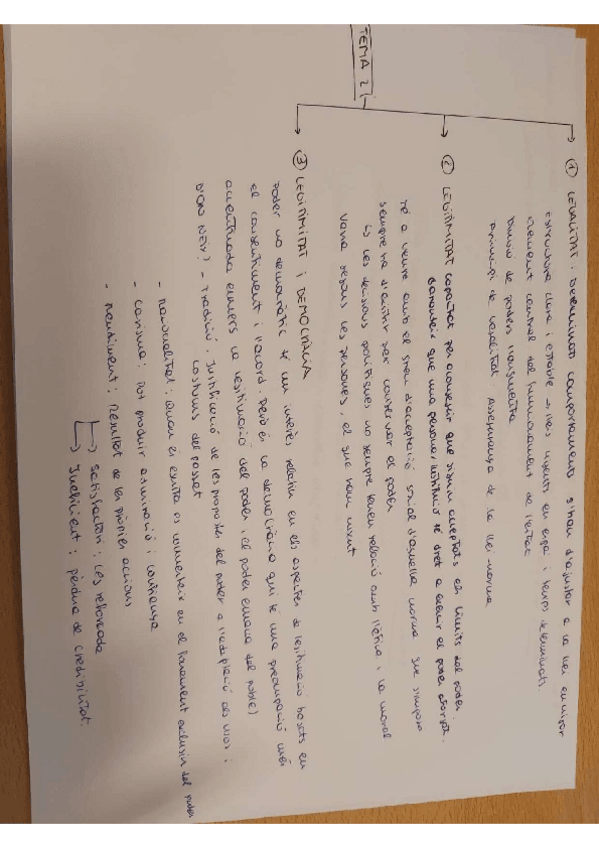 TEMA 2
① LEGALITAT: Determinats comportaments s'han d'ajustar a la llei en vigor
Estructura clara i estable → lleis vigents en espai i temps determinats.
Element central del funcionament de l'estat
Divisió de poders l'augmenta
Principi de legalitat Assegurança de la llei-norma
② LEGITIMITAT capacitat per aconseguir que siguin acceptats els límits del poder.
Garanteix que una persona, institució té dret a exercir el poder
té a veure amb el grau d'acceptació social d'aquella norma que s'imposa
sempre ha d'existir per conservar el poder
↳ les decisions polítiques no sempre tenen relació amb l'ètica i la moral
Varia segons les persones, el que hem viscut
③ LEGITIMITAT i DEMOCRÀCIA
Poder no democràtic té un interès relatiu en els aspectes de legitimació basats en
el consentiment i l'acord. Però és la democràcia qui té una preocupació més
accentuada envers la legitimació del poder, (el poder emana del poble)
D'ON NEIX? - Tradició: Justificació de les propostes del poder a l'adaptació als usos i
costums del passat
- racionalitat: quan és
en el fonament exclusiu del poder
- carisma: Pot produir admiració i confiança
- rendiment: Resultat de les pròpies accions
↳ Satisfactori: Les reforçada
↳ Ineficient: pèrdua de credibilitat.